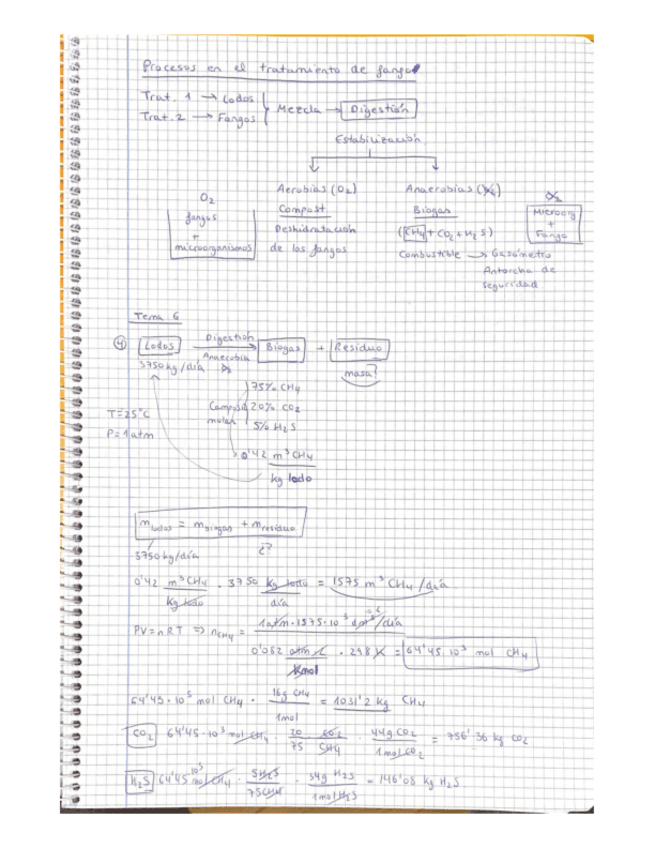 Procesos en el tratamiento de fangos
Trat. 1 → Lodos
Trat. 2 → Fangos
Mezcla → Digestión
Estabilización
Aerobias (O2)
Compost
Deshidratación
de los fangos
Anaerobias (O2)
Biogas
(CH4 + CO2 + H2S)
Combustible → Gasómetro
Antorcha de
seguridad
O2
fangos
+
microorganismos
O2
Microorg
+
Fango
Tema 6
4 Lodos Digestión Anaerobia O2 → Biogas + Residuo
3750 kg/día
masa?
T=25°C
P=1atm
Compos.
molar
75% CH4
20% CO2
5% H2S
0'42 m³ CH4 / kg lodo
m lodos = m biogas + m residuo
3750 kg/día
¿?
0'42 m³ CH4 / kg lodo · 3750 kg lodo / día = 1575 m³ CH4/día
PV=nRT ⇒ nCH4 = 1 atm · 1575·10³ dm³/día / 0'082 atm L / K mol · 298 K = 64'45 10³ mol CH4
64'45·10³ mol CH4 · 16g CH4 / 1mol = 1031'2 kg CH4
CO2 64'45·10³ mol CH4 · 20 CO2 / 75 CH4 · 44g CO2 / 1mol CO2 = 756'36 kg CO2
H2S 64'45 10³ mol CH4 · 5H2S / 75CH4 · 34g H2S / 1mol H2S = 146'08 kg H2S